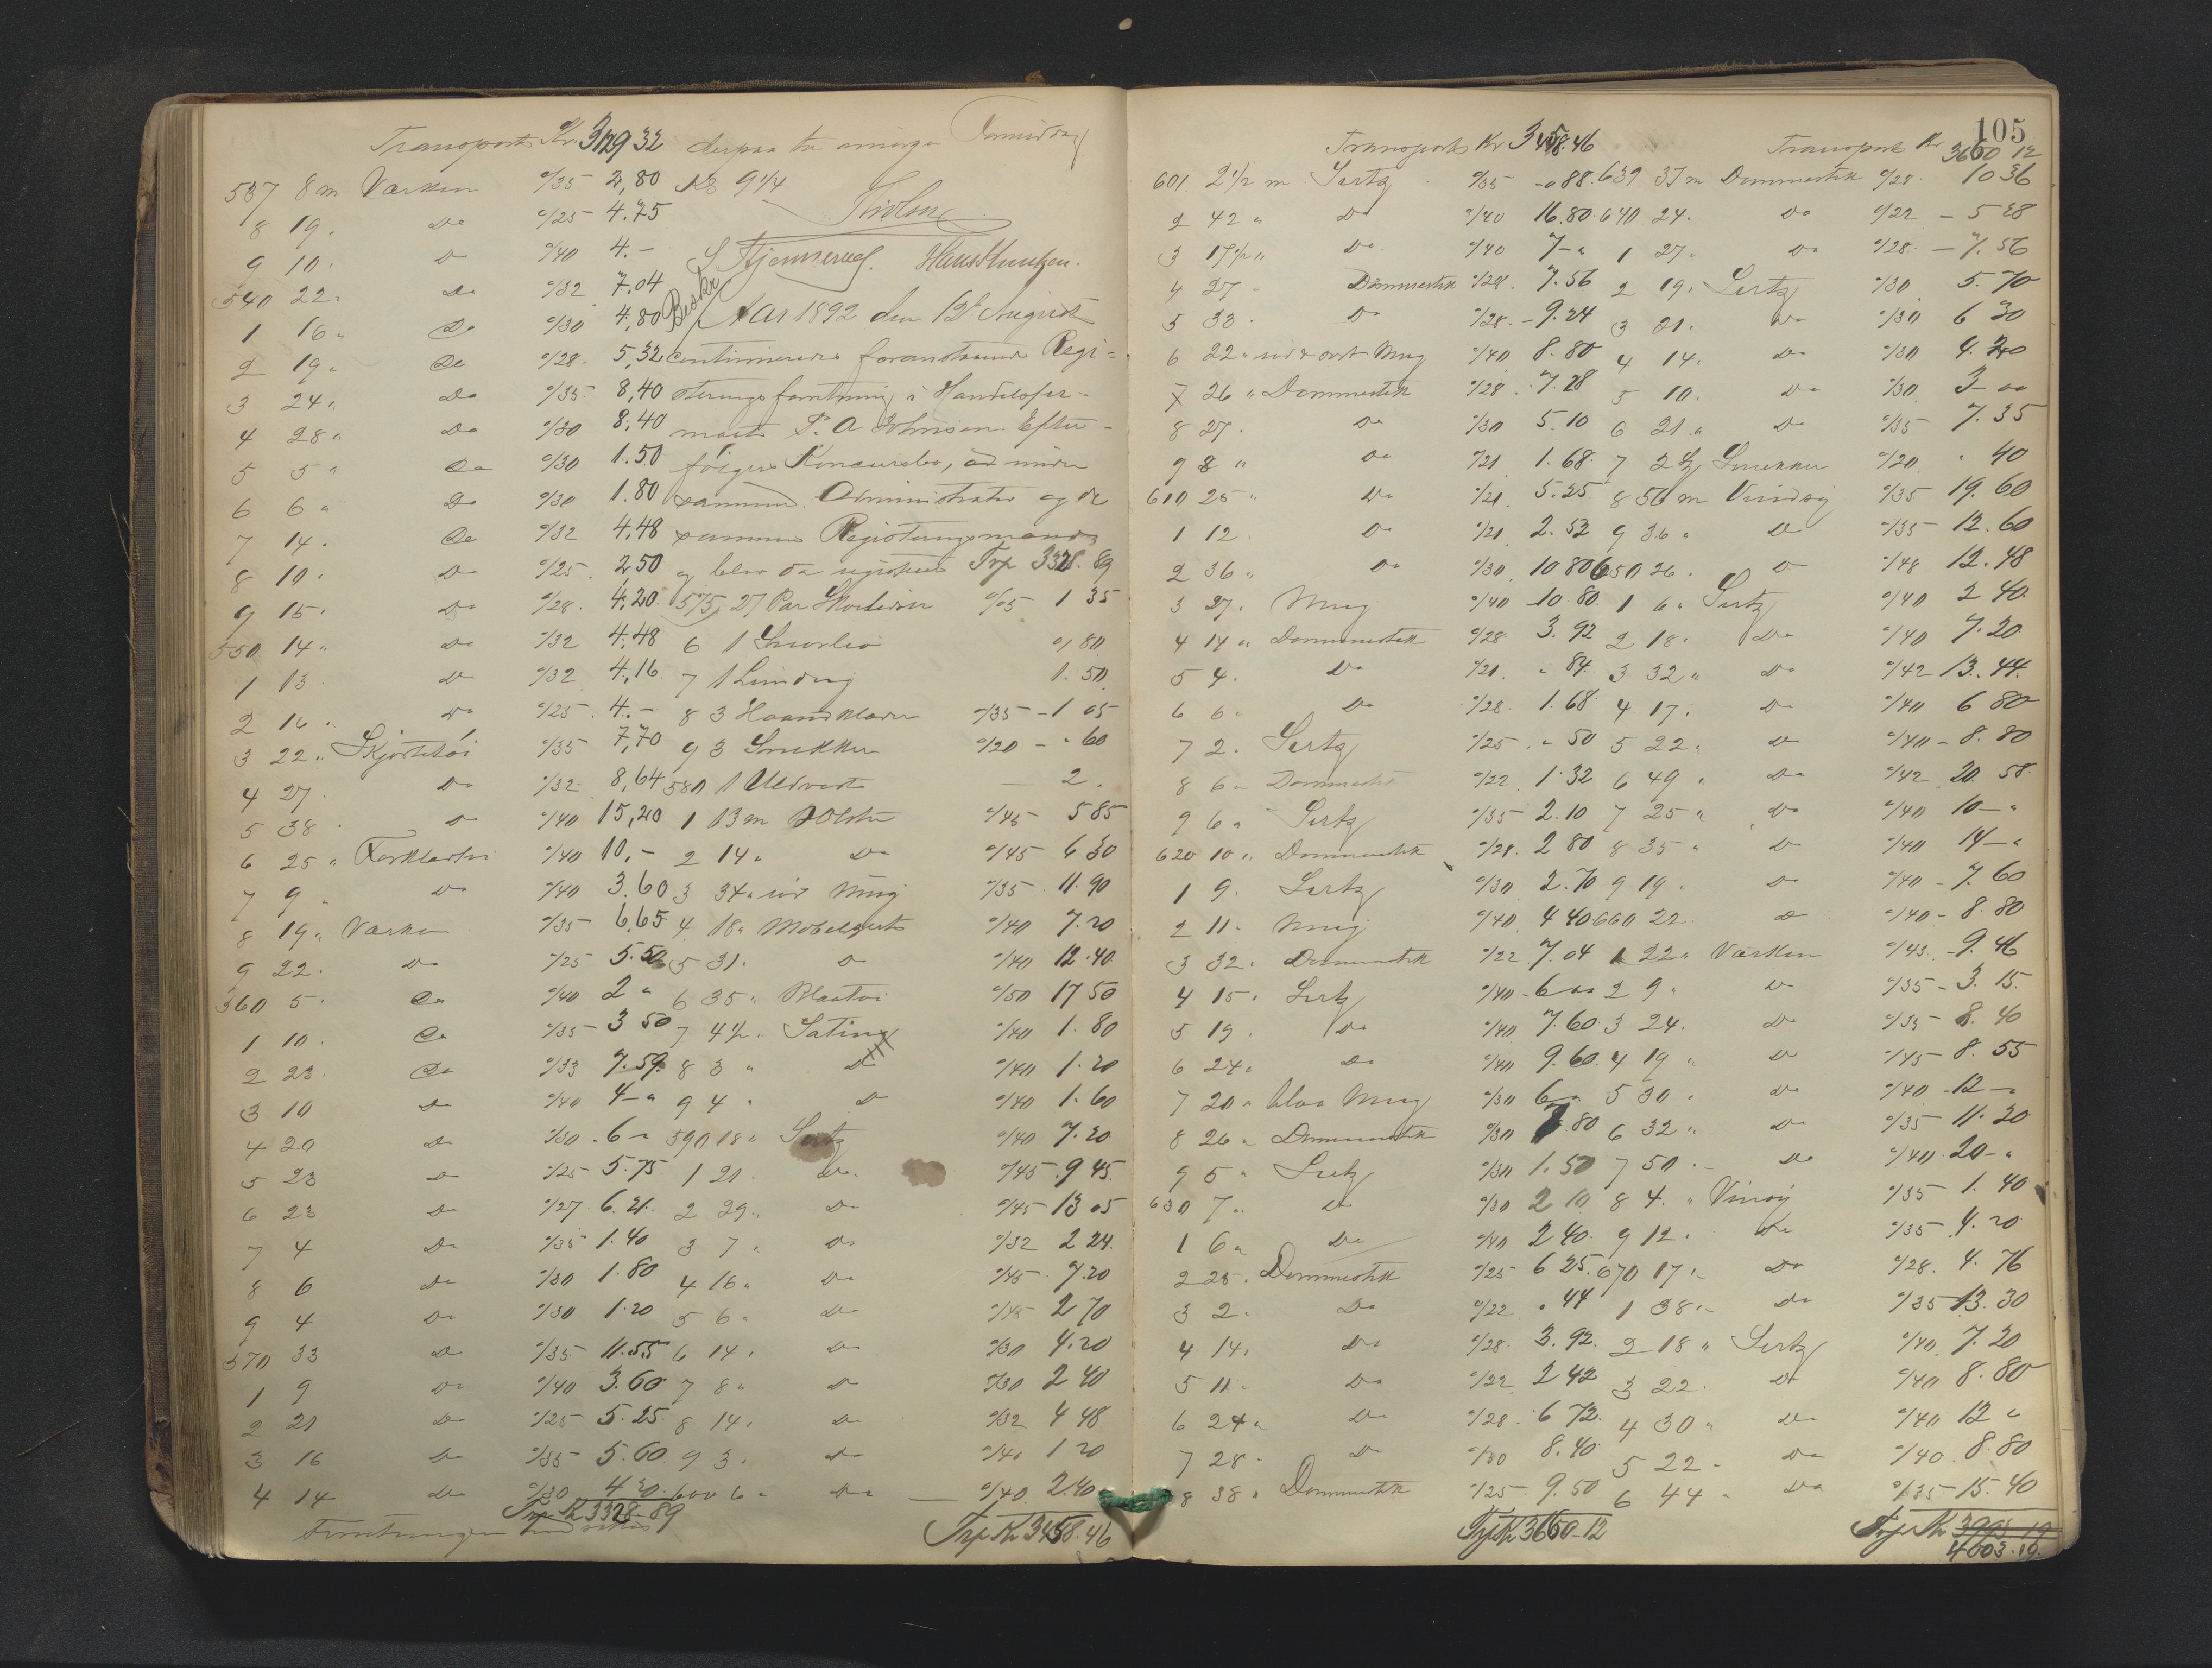 Transport Kr. 3129 32
537 8 m Værken º/35 2,80
8 19 " Do º/25 4.75
9 10 " Do º/40 4.-
540 22 " Do º/32 7.04
1 16 " Do º/30 4,80
2 19 " Do º/28 5,32
3 24 " Do º/35 8,40
4 28 " Do º/30 8,40
5 5 " Do º/30 1.50
6 6 " Do º/30 1.80
7 14 " Do º/32 4,48
8 10 " Do º/25 2,50
9 15 " Do º/28 4,20
550 14 " Do º/32 4,48
1 13 " Do º/32 4,16
2 16 " Do º/25 4.-
3 22 " Skjortetøi º/35 7,70
4 27 " Do º/32 8,64
5 38 " Do º/40 15,20
6 25 " Forklætøi º/40 10,-
7 9 " Do º/40 3,60
8 19 " Værken º/35 6,65
9 22 " Do º/25 5.50
560 5 " Do º/40 2 "
1 10 " Do º/35 3 50
2 23 " Do º/33 7.59
3 10 Do º/40 4 - "
4 20 Do º/30 6 - "
5 23 Do º/25 5.75
6 23 Do º/27 6.21
7 4 Do º/35 1.40
8 6 Do º/30 1.80
9 4 Do º/30 1.20
570 33 Do º/35 11.55
1 9 Do º/40 3.60
2 21 Do º/25 5.25
3 16 Do º/35 5.60
4 14 Do º/30 4.20
Trp Kr 3328.89
derpaa til imorgen Formiddag
Kl 9 1/4
Hans Knudsen.
Aar 1892 den 12te August
continueredes foranstaaende Regi=
steringsforretning i Handelsfir-
maet P. A. Johnsen Efter-
følgers Koncursbo, ad under
samme Administrator og de
samme Registeringsmænd
og blev da registreret Trp 3328.89
575, 27 Par º/05 1 35
6 1 º/80
7 1 1.50
8 3 Haandklæder º/35 1 05
9 3 º/20 " 60
580 1 2.
1 13 m º/45 5 85
2 14 " Do º/45 6 30
3 34 " º/35 11.90
4 18 " Møbel º/40 7.20
5 31 " Do º/40 12.40
6 35 " Blaatøi º/50 17 50
7 4 1/2 " Satin º/40 1.80
8 3 " Do º/40 1.20
9 4 " Do º/40 1.60
590 18 " Sertz º/40 7.20
1 21 " Do º/45 9 45
2 29 " Do º/45 13 05
3 7 " Do º/32 2 24
4 16 " Do º/45 7.20
5 6 " Do º/45 2 70
6 14 " Do º/30 4.20
7 8 " Do º/30 2 40
8 14 " Do º/32 4 48
9 3 " Do º/40 1 20
600 6 " Do º/40 2.40
Trp Kr 3458.46
105
Transport Kr 3458.46
601 2 1/2 m Sertz º/35 - 88
2 42 " Do º/40 16.80
3 17 1/2 " Do º/40 7 - "
4 27 " Dommestik º/28 7.56
5 33 " Do º/28 9.24
6 22 " º/40 8.80
7 26 " Dommestik º/28 7.28
8 27 " Do º/30 5.10
9 8 " Do º/21 1.68
610 25 " Do º/21 5.25
1 12 " Do º/21 2.52
2 36 " Do º/30 10 80
3 27 " º/40 10.80
4 14 " Dommestik º/28 3.92
5 4 " Do º/21 " 84
6 6 " Do º/28 1.68
7 2 " Sertz º/25 " 50
8 6 " Dommestik º/22 1.32
9 6 " Sertz º/35 2.10
620 10 " Dommestik º/28 2 80
1 9 " Sertz º/30 2.70
2 11 " º/40 4 40
3 32 " Dommestik º/22 7.04
4 15 " Sertz º/40 6 "
5 19 " Do º/40 7.60
6 24 " Do º/40 9.60
7 20 " blaa º/30 6 "
8 26 " Dommestik º/30 7.80
9 5 " Sertz º/30 1.50
630 7 " Do º/30 2 10
1 6 " Do º/40 2 40
2 25 " Dommestik º/25 6 25
3 2 " Do º/22 " 44
4 14 " Do º/28 3.92
5 11 " Do º/22 2 42
6 24 " Do º/28 6 72
7 28 " Do º/30 8.40
8 38 " Dommestik º/25 9.50
Trp Kr 3650-12
Transport Kr 3650 12
639 37 m Dommestik º/28 10 36
640 24 " Do º/22 5 28
1 27 " Do º/28 7.56
2 19 " Sertz º/30 5.70
3 21 " Do º/30 6 30
4 14 " Do º/30 4.20
5 10 " Do º/30 3 -
6 21 " Do º/35 7.35
7 2 º/20 " 40
8 56 m º/35 19.60
9 36 " Do º/35 12.60
650 26 " Do º/48 12.48
1 6 " Sertz º/40 2 40
2 18 " Do º/40 7.20
3 32 " Do º/42 13.44
4 17 " Do º/40 6 80
5 22 " Do º/40 8.80
6 49 " Do º/42 20 58
7 25 " Do º/40 10 - "
8 35 " Do º/40 14 - "
9 19 " Do º/40 7.60
660 22 " Do º/40 8.80
1 22 " Værken º/43 9.46
2 9 " Do º/35 3.15
3 24 " Do º/35 8.40
4 19 " Do º/45 8.55
5 30 " Do º/40 12 - "
6 32 " Do º/35 11.20
7 50 " Do º/40 20 - "
8 4 " º/35 1.40
9 12 " Do º/35 4.20
670 17 " Do º/28 4.76
1 38 " Do º/35 13.30
2 18 " Sertz º/40 7.20
3 22 " Do º/40 8.80
4 30 " Do º/40 12 "
5 22 " Do º/40 8.80
6 44 " Do º/35 15.40
Trp Kr 3993.19
4003.19